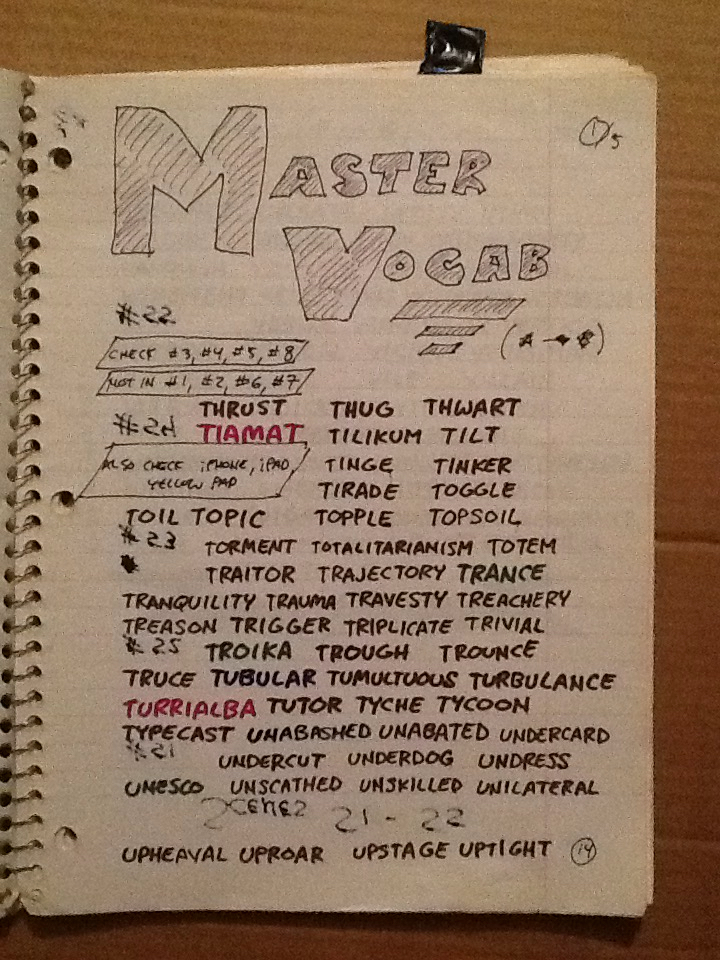 1/5
MASTER
VOCAB
#22
(A → B)
CHECK #3, #4, #5, #8
NOT IN #1, #2, #6, #7
THRUST THUG THWART
#24 TIAMAT TILIKUM TILT
ALSO CHECK iPHONE, iPAD, TINGE TINKER
YELLOW PAD TIRADE TOGGLE
TOIL TOPIC TOPPLE TOPSOIL
#23 TORMENT TOTALITARIANISM TOTEM
TRAITOR TRAJECTORY TRANCE
TRANQUILITY TRAUMA TRAVESTY TREACHERY
TREASON TRIGGER TRIPLICATE TRIVIAL
#25 TROIKA TROUGH TROUNCE
TRUCE TUBULAR TUMULTUOUS TURBULANCE
TURRIALBA TUTOR TYCHE TYCOON
TYPECAST UNABASHED UNABATED UNDERCARD
#21 UNDERCUT UNDERDOG UNDRESS
UNESCO UNSCATHED UNSKILLED UNILATERAL
SCENES 21 - 22
UPHEAVAL UPROAR UPSTAGE UPTIGHT 14